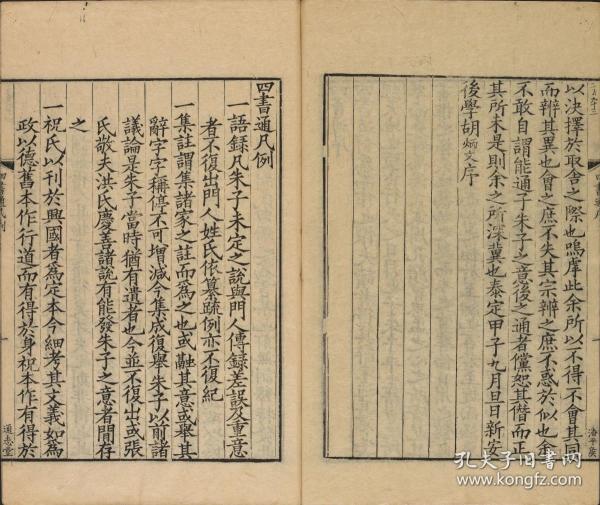 以決擇於取舍之際也嗚虖此余所以不得不會其同
而辨其異也會之庶不失其宗辨之庶不惑於似也余
不敢自謂能通子朱子之意後之通者儻恕其僭而正
其所未是則余之所深冀也泰定甲子九月旦日新安
後學胡炳文序
四書通凡例
一語録凡朱子未定之說與門人傳録差誤及重意
者不復出門人姓氏依纂疏例亦不復紀
一集註謂集諸家之註而為之也或融其意或舉其
辭字字稱停不可增減今集成復舉朱子以前諸
議論是朱子當時猶有遺者也今並不復出或張
氏敬夫洪氏慶善諸說有能發朱子之意者閒存
之
一祝氏以刊於興國者為定本今細考其文義如為
政以德舊本作行道而有得於身祝本作有得於
通志堂
孔夫子旧书网
www.kongfz.com